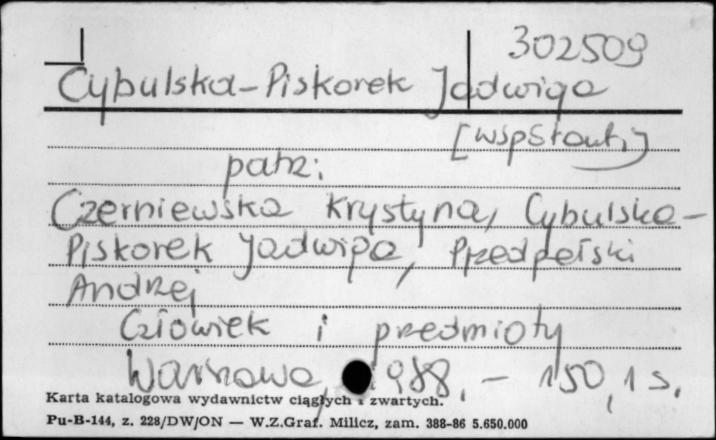 302509
Cybulska-Piskorek Jadwiga
[współaut.]
patrz:
Czerniewska Krystyna, Cybulska-
Piskorek Jadwiga, Przedpełski
Andrzej
Człowiek i przedmioty
Warszawa, 1988. - 150,1 s.
Karta katalogowa wydawnictw ciągłych i zwartych.
Pu-B-144, z. 228/DW/ON — W.Z.Graf. Milicz, zam. 388-86 5.650.000